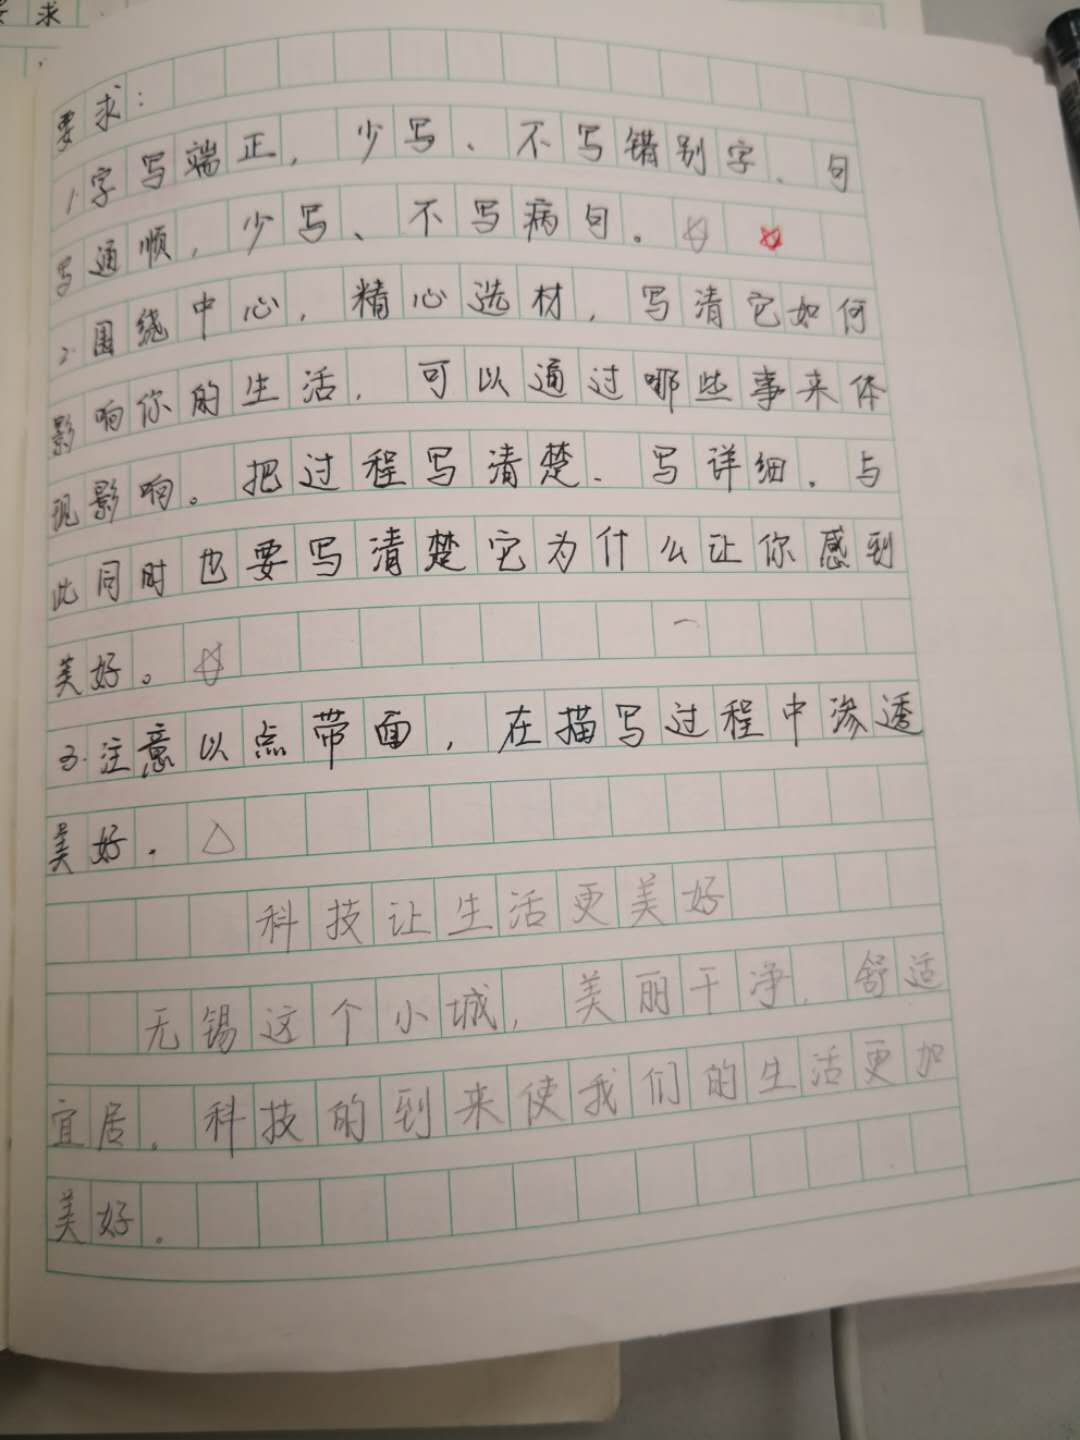 要求
要求：
1.字写端正，少写、不写错别字、句
写通顺，少写、不写病句。
2.围绕中心，精心选材，写清它如何
影响你的生活，可以通过哪些事来体
现影响。把过程写清楚、写详细。与
此同时也要写清楚它为什么让你感到
美好。
3.注意以点带面，在描写过程中渗透
美好。
科技让生活更美好
无锡这个小城，美丽干净，舒适
宜居。科技的到来使我们的生活更加
美好。